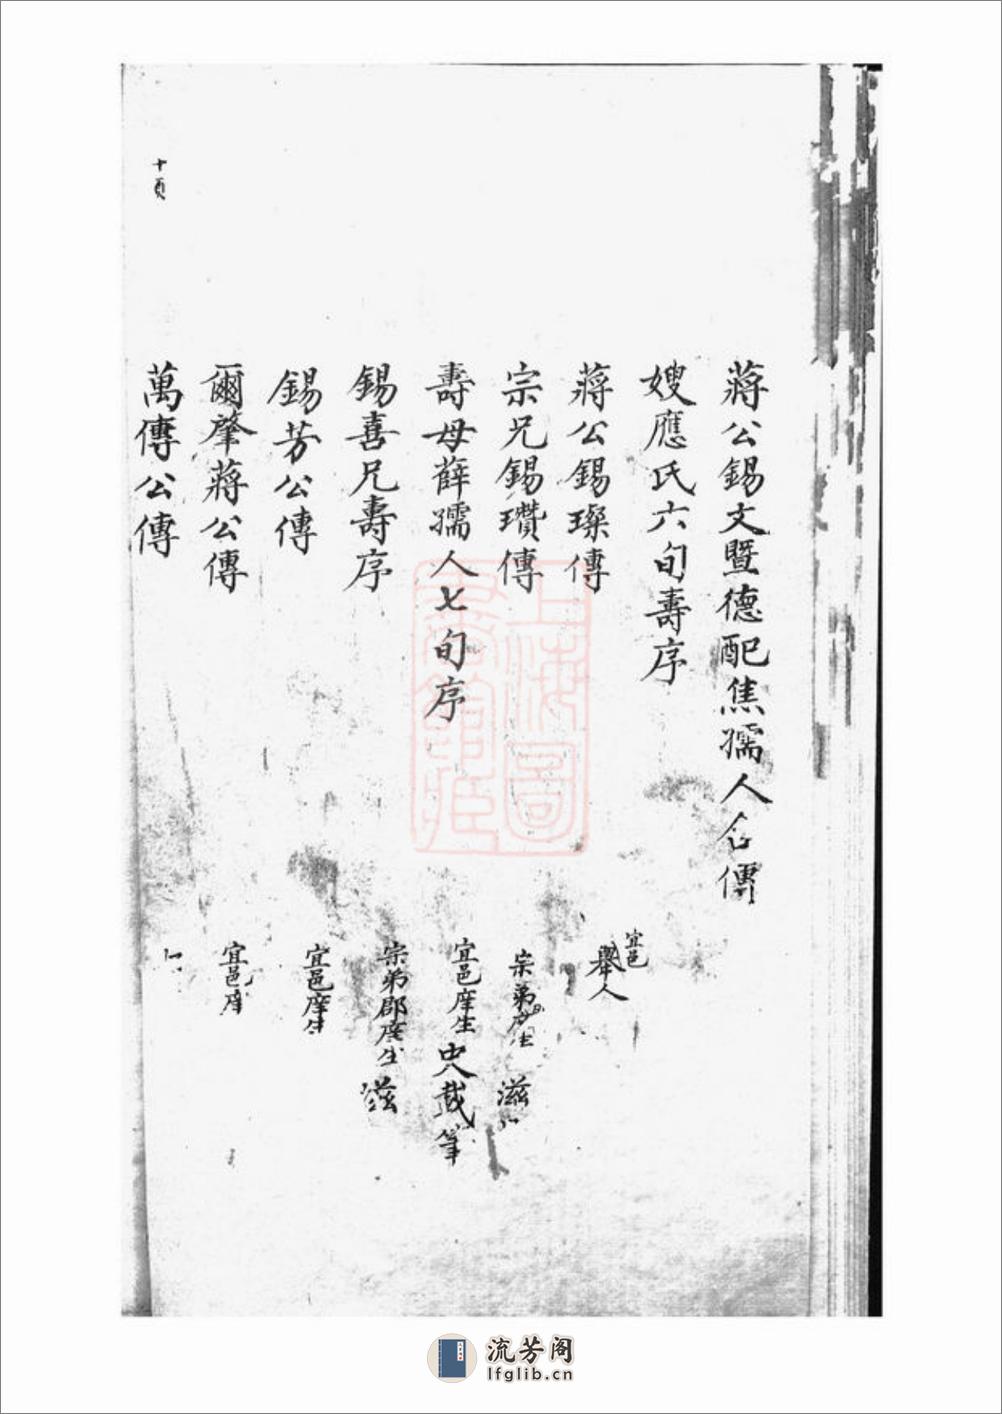 蔣公錫文暨德配焦孺人合傳
嫂應氏六旬壽序
宜邑
舉人
蔣公錫璨傳
宗兄錫瓚傳
宗弟 生 滋
壽母薛孺人七旬序
宜邑庠生 史載筆
錫喜兄壽序
宗弟郡庠生 滋
錫芳公傳
宜邑庠生
爾肇蔣公傳
宜邑庠
萬傳公傳
十頁
上海圖
書館藏
流芳阁
lfglib.cn